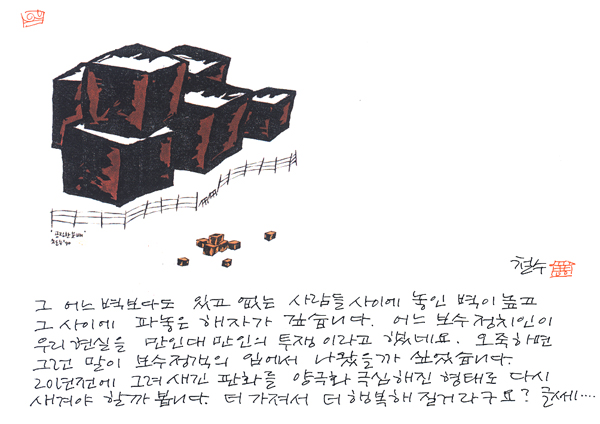 "공정한 분배"
철수 '90
철수
그 어느 벽보다도 있고 없는 사람들 사이에 놓인 벽이 높고
그 사이에 파놓은 해자가 깊습니다. 어느 보수정치인이
우리현실을 만인대 만인의 투쟁이라고 했데요. 오죽하면
그런 말이 보수정객의 입에서 나왔을까 싶었습니다.
20년전에 그려 새긴 판화를 양극화 극심해진 형태로 다시
새겨야 할까 봅니다. 더 가져서 더 행복해 질거라구요? 글쎄....